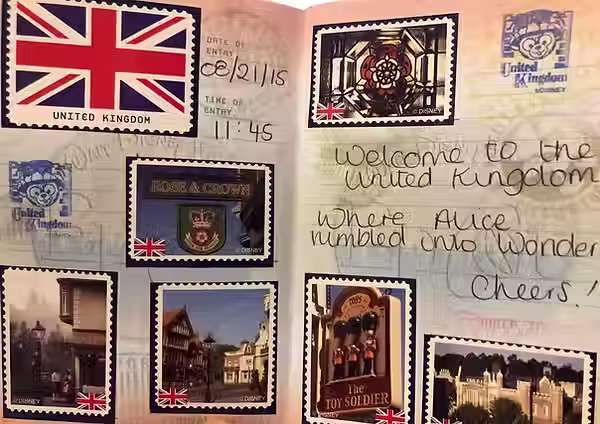 UNITED KINGDOM
DATE OF
ENTRY
08/21/15
TIME OF
ENTRY
11:45
United
Kingdom
ROSE & CROWN
© DISNEY
© DISNEY
© DISNEY
© DISNEY
United
Kingdom
Welcome to the
United Kingdom
Where Alice
into Wonder
Cheers!
The
TOY SOLDIER
© DISNEY